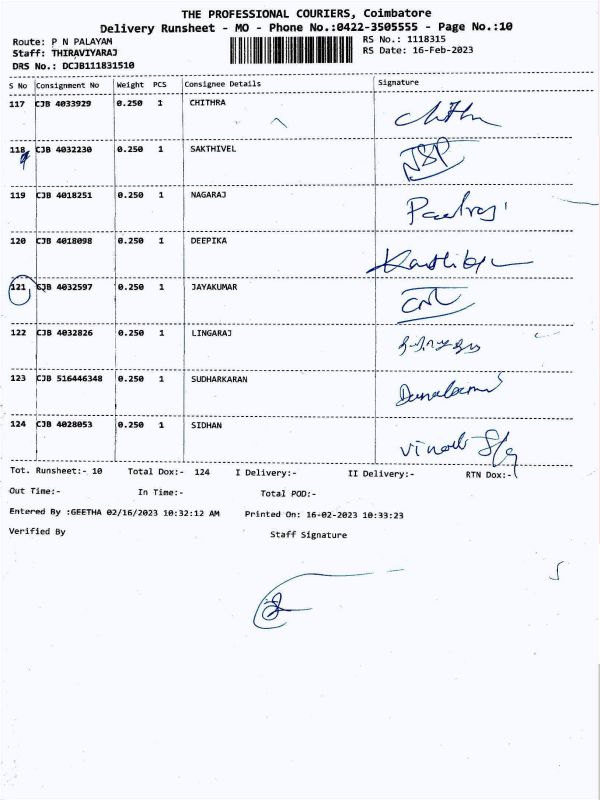 THE PROFESSIONAL COURIERS, Coimbatore
Delivery Runsheet - MO - Phone No.:0422-3505555 - Page No.:10
Route: P N PALAYAM RS No.: 1118315
Staff: THIRAVIYARAJ RS Date: 16-Feb-2023
DRS No.: DCJB111831510
S No Consignment No Weight PCS Consignee Details Signature
117 CJB 4033929 0.250 1 CHITHRA
118 CJB 4032230 0.250 1 SAKTHIVEL
119 CJB 4018251 0.250 1 NAGARAJ
120 CJB 4018098 0.250 1 DEEPIKA
121 CJB 4032597 0.250 1 JAYAKUMAR
122 CJB 4032826 0.250 1 LINGARAJ
123 CJB 516446348 0.250 1 SUDHARKARAN
124 CJB 4028053 0.250 1 SIDHAN
Tot. Runsheet:- 10 Total Dox:- 124 I Delivery:- II Delivery:- RTN Dox:-
Out Time:- In Time:- Total POD:-
Entered By :GEETHA 02/16/2023 10:32:12 AM Printed On: 16-02-2023 10:33:23
Verified By Staff Signature